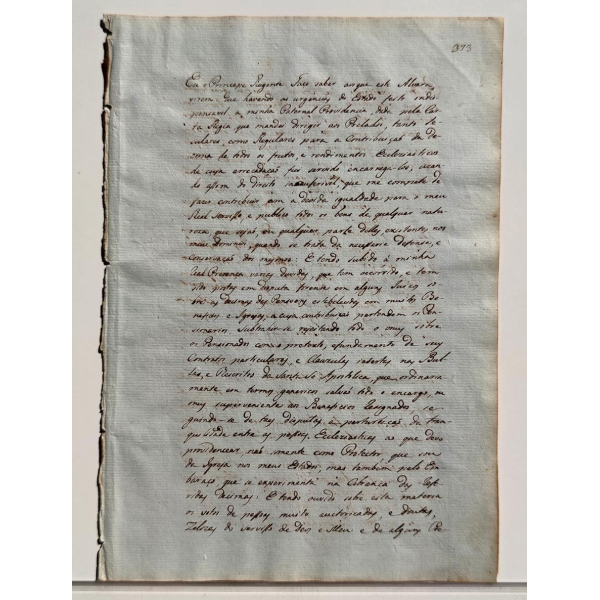 273
Eu o Principe Regente faço saber aos que este Alvara
virem: Que havendo as urgencias do Estado feito indis-
pensavel a minha Paternal Providencia, dada pela Car-
ta Regia que mandei dirigir aos Prelados, tanto Se-
culares, como Regulares para a Contribuiçaõ da De-
zima de todos os frutos, e rendimentos Ecclesiasticos
de cuja arrecadaçaõ fui servido encarregalos, uzan-
do assim do direito inauferivel, que me compete de
fazer contribuir com a devida igualdade para o meu
Real Serviço, e publico todos os bens de qualquer natu-
reza que sejaõ em qualquer parte delles, existentes nos
meus Dominios, quando se trata da necessaria defensa, e
conservaçaõ dos mesmos: E tendo subido á minha
Real Presença varias duvidas, que tem occorrido, e tem
sido postas em disputa forense em alguns Juizos so-
bre as Dezimas das Pensoens estabelecidas em muitos Be-
neficios e Igrejas, a cuja contribuiçaõ pertendem os Pen-
sionarios subtrahir-se rejeitando todo o onus sobre
os Pensionados com o pretexto, e fundamento de seus
Contratos particulares, e Clauzulas insertas nas Bul-
las, e Rescritos da Santa Sé Apostolica, que ordinaria-
mente em termos genericos salvaõ todo o encargo, ou
onus superveniente aos Beneficios Resignados se-
guindo-se de taes disputas a perturbaçaõ da tran-
quilidade entre as pessoas Ecclesiasticas ao que devo
providenciar, naõ somente como Protector que sou
da Igreja nos meus Estados, mas tambem pelo Em-
baraço que se experimenta na Cobrança das refe-
ridas Dezimas: E tendo ouvido sobre esta materia
os votos de pessoas muito auctorizadas, e doutas,
Zelozas do serviço de Deos e Meu e de alguns Pe-